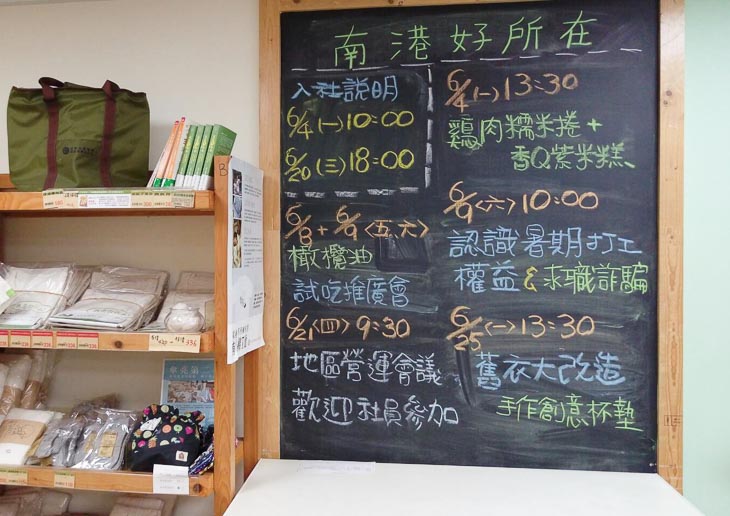 南港好所在
入社說明
6/4(一)10:00
6/20(三)18:00
6/8+6/9〈五、六〉
橄欖油
試吃推廣會
6/21〈四〉9:30
地區營運會議
歡迎社員參加
6/4(一)13:30
鷄肉糯米捲+
香Q紫米糕、
6/9〈六〉10:00
認識暑期打工
權益&求職詐騙
6/25(一)13:30
舊衣大改造
手作創意杯墊
B
336